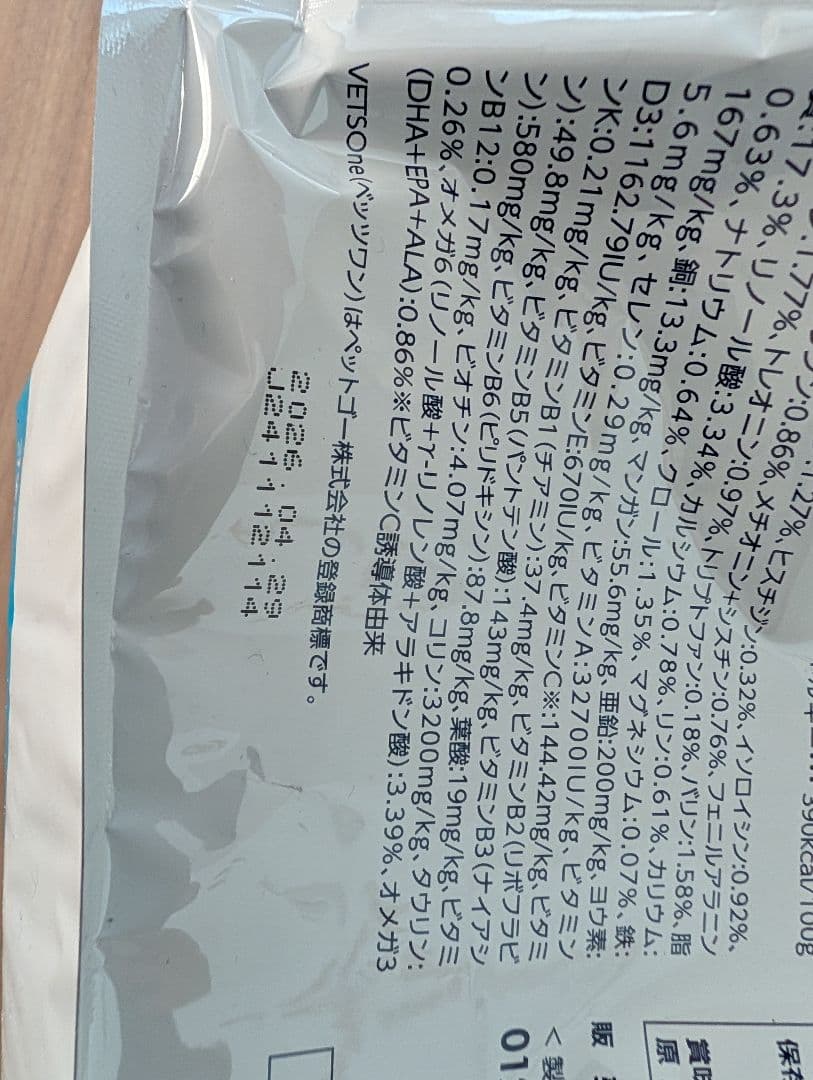 .1.77%、
.1.27%、ヒスチジン:0.32%、イソロイシン:0.92%、
ン:0.86%、メチオニン+シスチン:0.76%、フェニルアラニン
:17.3%、リノール酸:3.34%、トリプトファン:0.18%、バリン:1.58%、脂
トレオニン:0.97%、
0.63%、ナトリウム:0.64%、カルシウム:0.78%、リン:0.61%、カリウム:
167mg/kg、銅:13.3mg/kg、クロール:1.35%、マグネシウム:0.07%、鉄:
5.6mg/kg、セレン:0.29mg/kg、マンガン:55.6mg/kg、亜鉛:200mg/kg、ヨウ素:
D3:1162.79IU/kg、ビタミンE:670IU/kg、ビタミンA:32700IU/kg、ビタミン
ンK:0.21mg/kg、ビタミンB1(チアミン):37.4mg/kg、ビタミンC※:144.42mg/kg、ビタミ
ン):49.8mg/kg、ビタミンB5(パントテン酸):143mg/kg、ビタミンB2(リボフラビ
ン):580mg/kg、ビタミンB6(ピリドキシン):87.8mg/kg、ビタミンB3(ナイアシ
ンB12:0.17mg/kg、ビオチン:4.07mg/kg、葉酸:19mg/kg、ビタミ
0.26%、オメガ6(リノール酸+γ-リノレン酸+アラキドン酸):3.39%、オメガ3
コリン:3200mg/kg、タウリン:
(DHA+EPA+ALA):0.86%※ビタミンC誘導体由来
VETSOne(ベッツワン)はペットゴー株式会社の登録商標です。
2026.04.29
J241112114
390kcal/100g
保存
賞味
原
販
<製
01